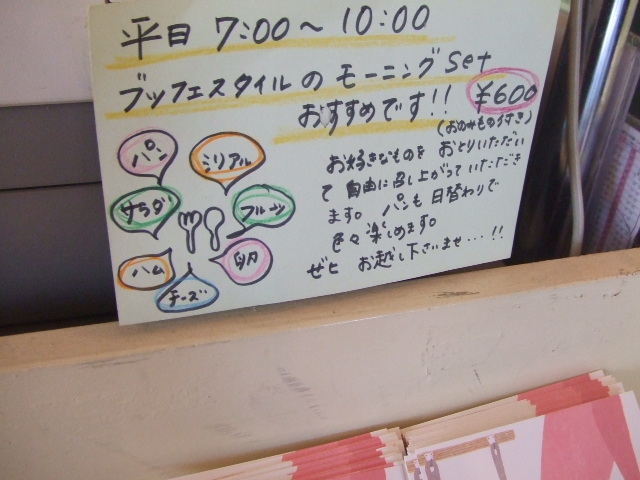 平日 7:00〜10:00
ブッフェスタイルの モーニングSet
おすすめです!! ¥600
(おのみものつき)
パン
ミリアル
サラダ
フルーツ
ハム
卵
チーズ
お好きなものを おとりいただい
て 自由に召し上がって いただき
ます。 パンも日替わりで
色々楽しめます。
ぜヒ お越し下さいませ…!!